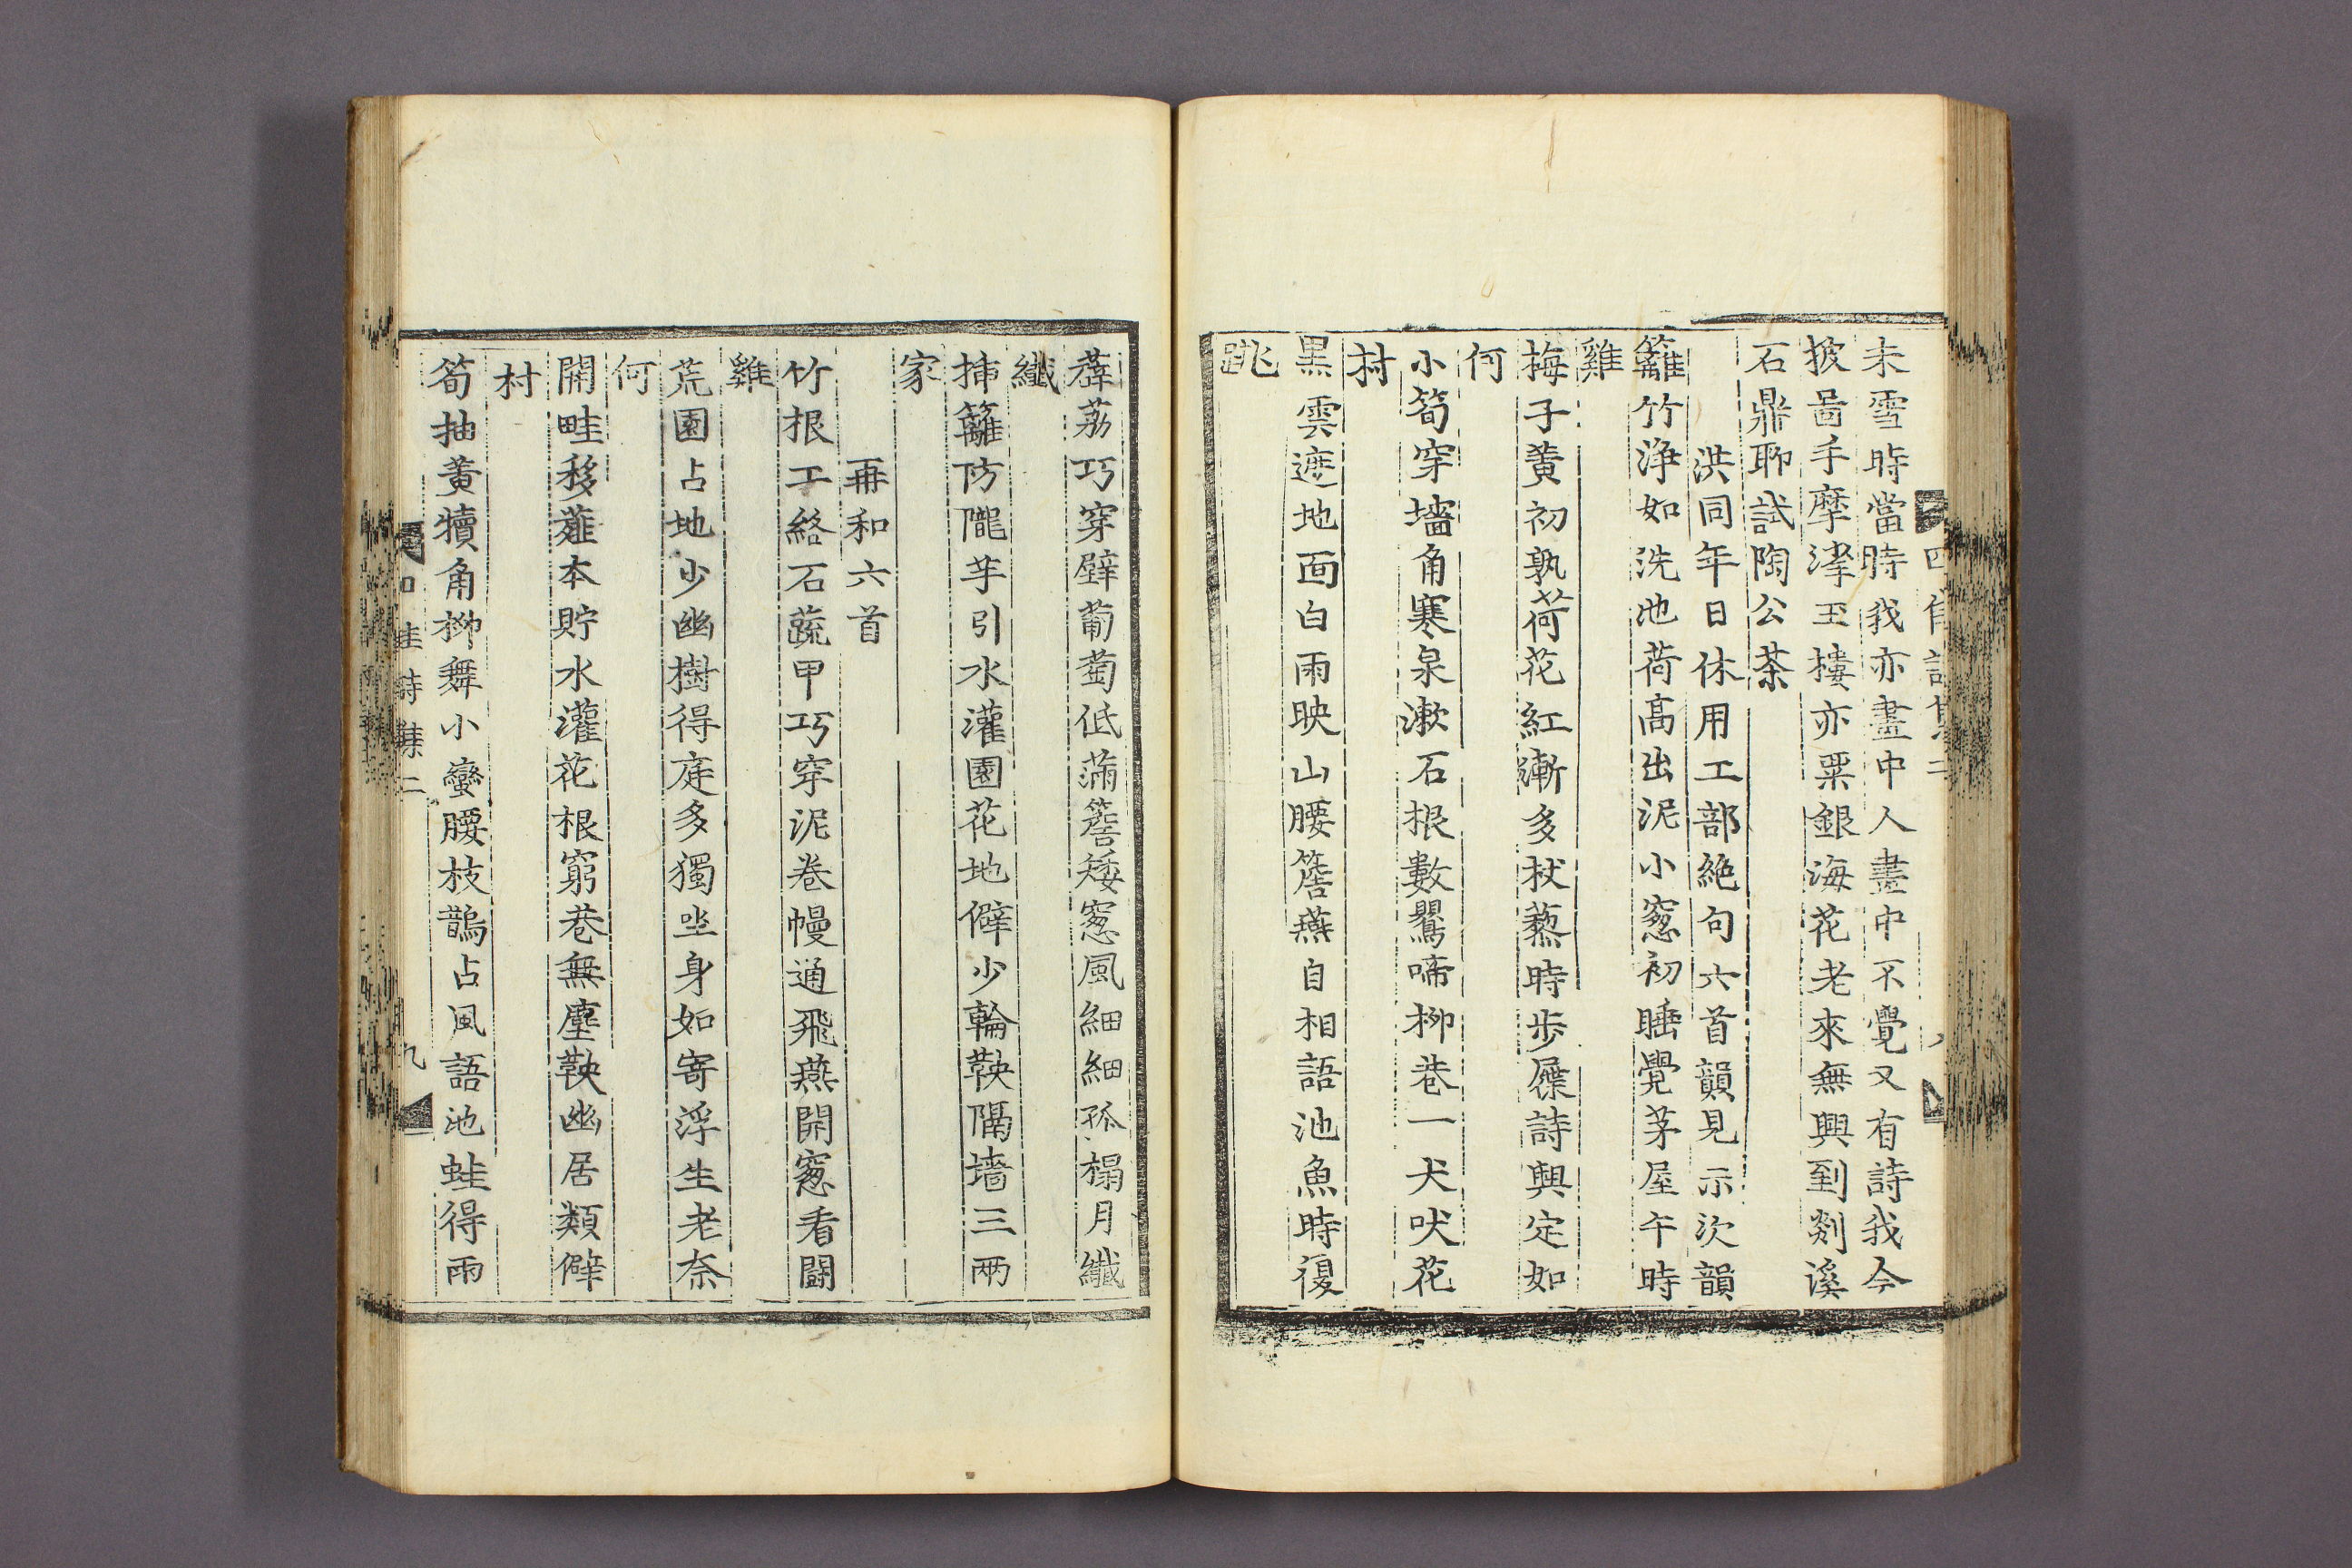 未雪時當時我亦畫中人畫中不覺又有詩我今
披啚手摩挲玉樓亦粟銀海花老來無興到剡溪
石鼎聊試陶公茶
洪同年日休用工部絶句六首韻見示次韻
籬竹淨如洗池荷高出泥小窓初睡覺茅屋午時
雞
梅子黃初孰荷花紅漸多杖藜時步屧詩興定如
何
小筍穿墻角寒泉漱石根數鸎啼柳巷一犬吠花
村
黒雲遮地面白雨映山腰簷燕自相語池魚時復
跳
薜荔巧穿壁葡萄低滿簷矮窓風細細孤榻月纖
纖
揷籬防隴芋引水灌園花地僻少輪鞅隔墻三兩
家
再和六首
竹根工絡石蔬甲巧穿泥卷幔通飛燕開窓看鬪
雞
荒園占地少幽樹得庭多獨坐身如寄浮生老奈
何
開畦移薤本貯水灌花根窮巷無塵鞅幽居類僻
村
筍抽黃犢角柳舞小蠻腰枝鵲占風語池蛙得雨
四佳詩集二 九